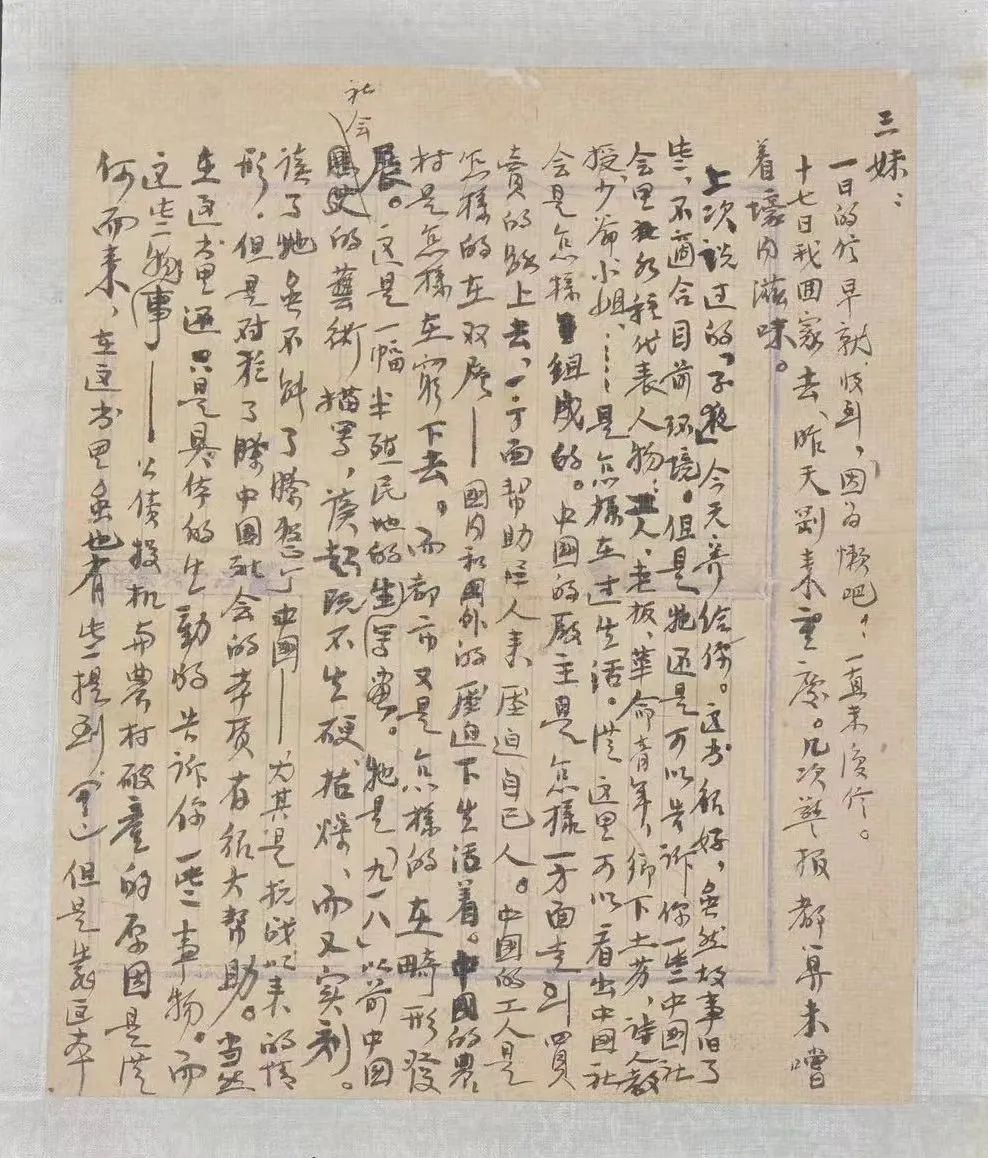 三妹：
一日的信早就收到，因为懒吧，一直未复信。
十七日我回家去，昨天刚来重庆。几次警报都算未嚐
着壕内滋味。
上次说过的，「子夜」今天寄给你。这书很好，虽然故事旧了
些，不适合目前环境。但是牠还是可以告诉你一些中国社
会里各种代表人物：工人、老板、革命青年，乡下土劣，诗人教
授、少爷小姐……是怎样在过生活。从这里可以看出中国社
会是怎样组成的。中国的厰主是怎样一方面走到買
卖的路上去，一方面帮助
人来压迫自己人。中国的工人是
怎样的在双层——國内和國外的压迫下生活着。中國的農
村是怎樣在窮下去。而都市又是怎樣的在畸形發
展。这是一幅半殖民地的生
画。牠是「九一八」以前中国
社会
的藝術描写，读起既不生硬、枯燥，而又实刻。
读了牠虽不能了
中國——尤其是抗战以来的情
形，但是对於了
中國社会的本质有很大帮助。当然
在这书里还只是具体的生動的告诉你一些事物。而
这些物事——公债投机与農村破產的原因是从
何而来，在这书里虽也有些提到
但是
这本